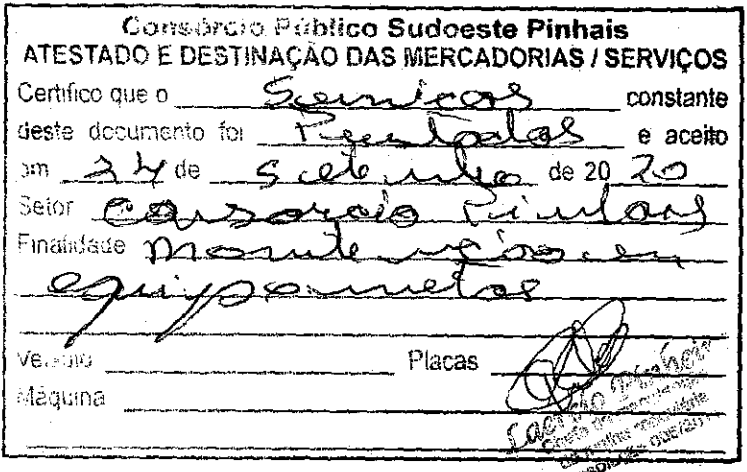 Consórcio Público Sudoeste Pinhais
ATESTADO E DESTINAÇÃO DAS MERCADORIAS / SERVIÇOS
Certifico que o Serviços constante
deste documento foi Prestados e aceito
em 24 de Setembro de 20 20
Setor Consorcio Pinhais
Finalidade Manutenção em
equipametos
Veículo Placas
Máquina
Laercio Pinheiro